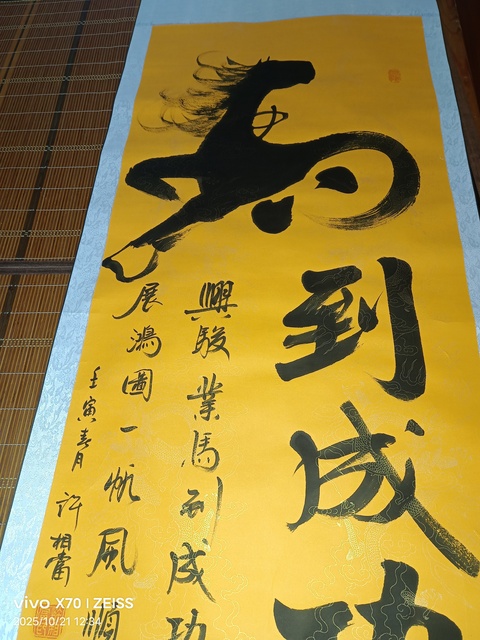 馬到成功
興駿業馬到成功
展鴻圖一帆風順
壬寅春月 許相
vivo X70 | ZEISS
2025/10/21 12:34